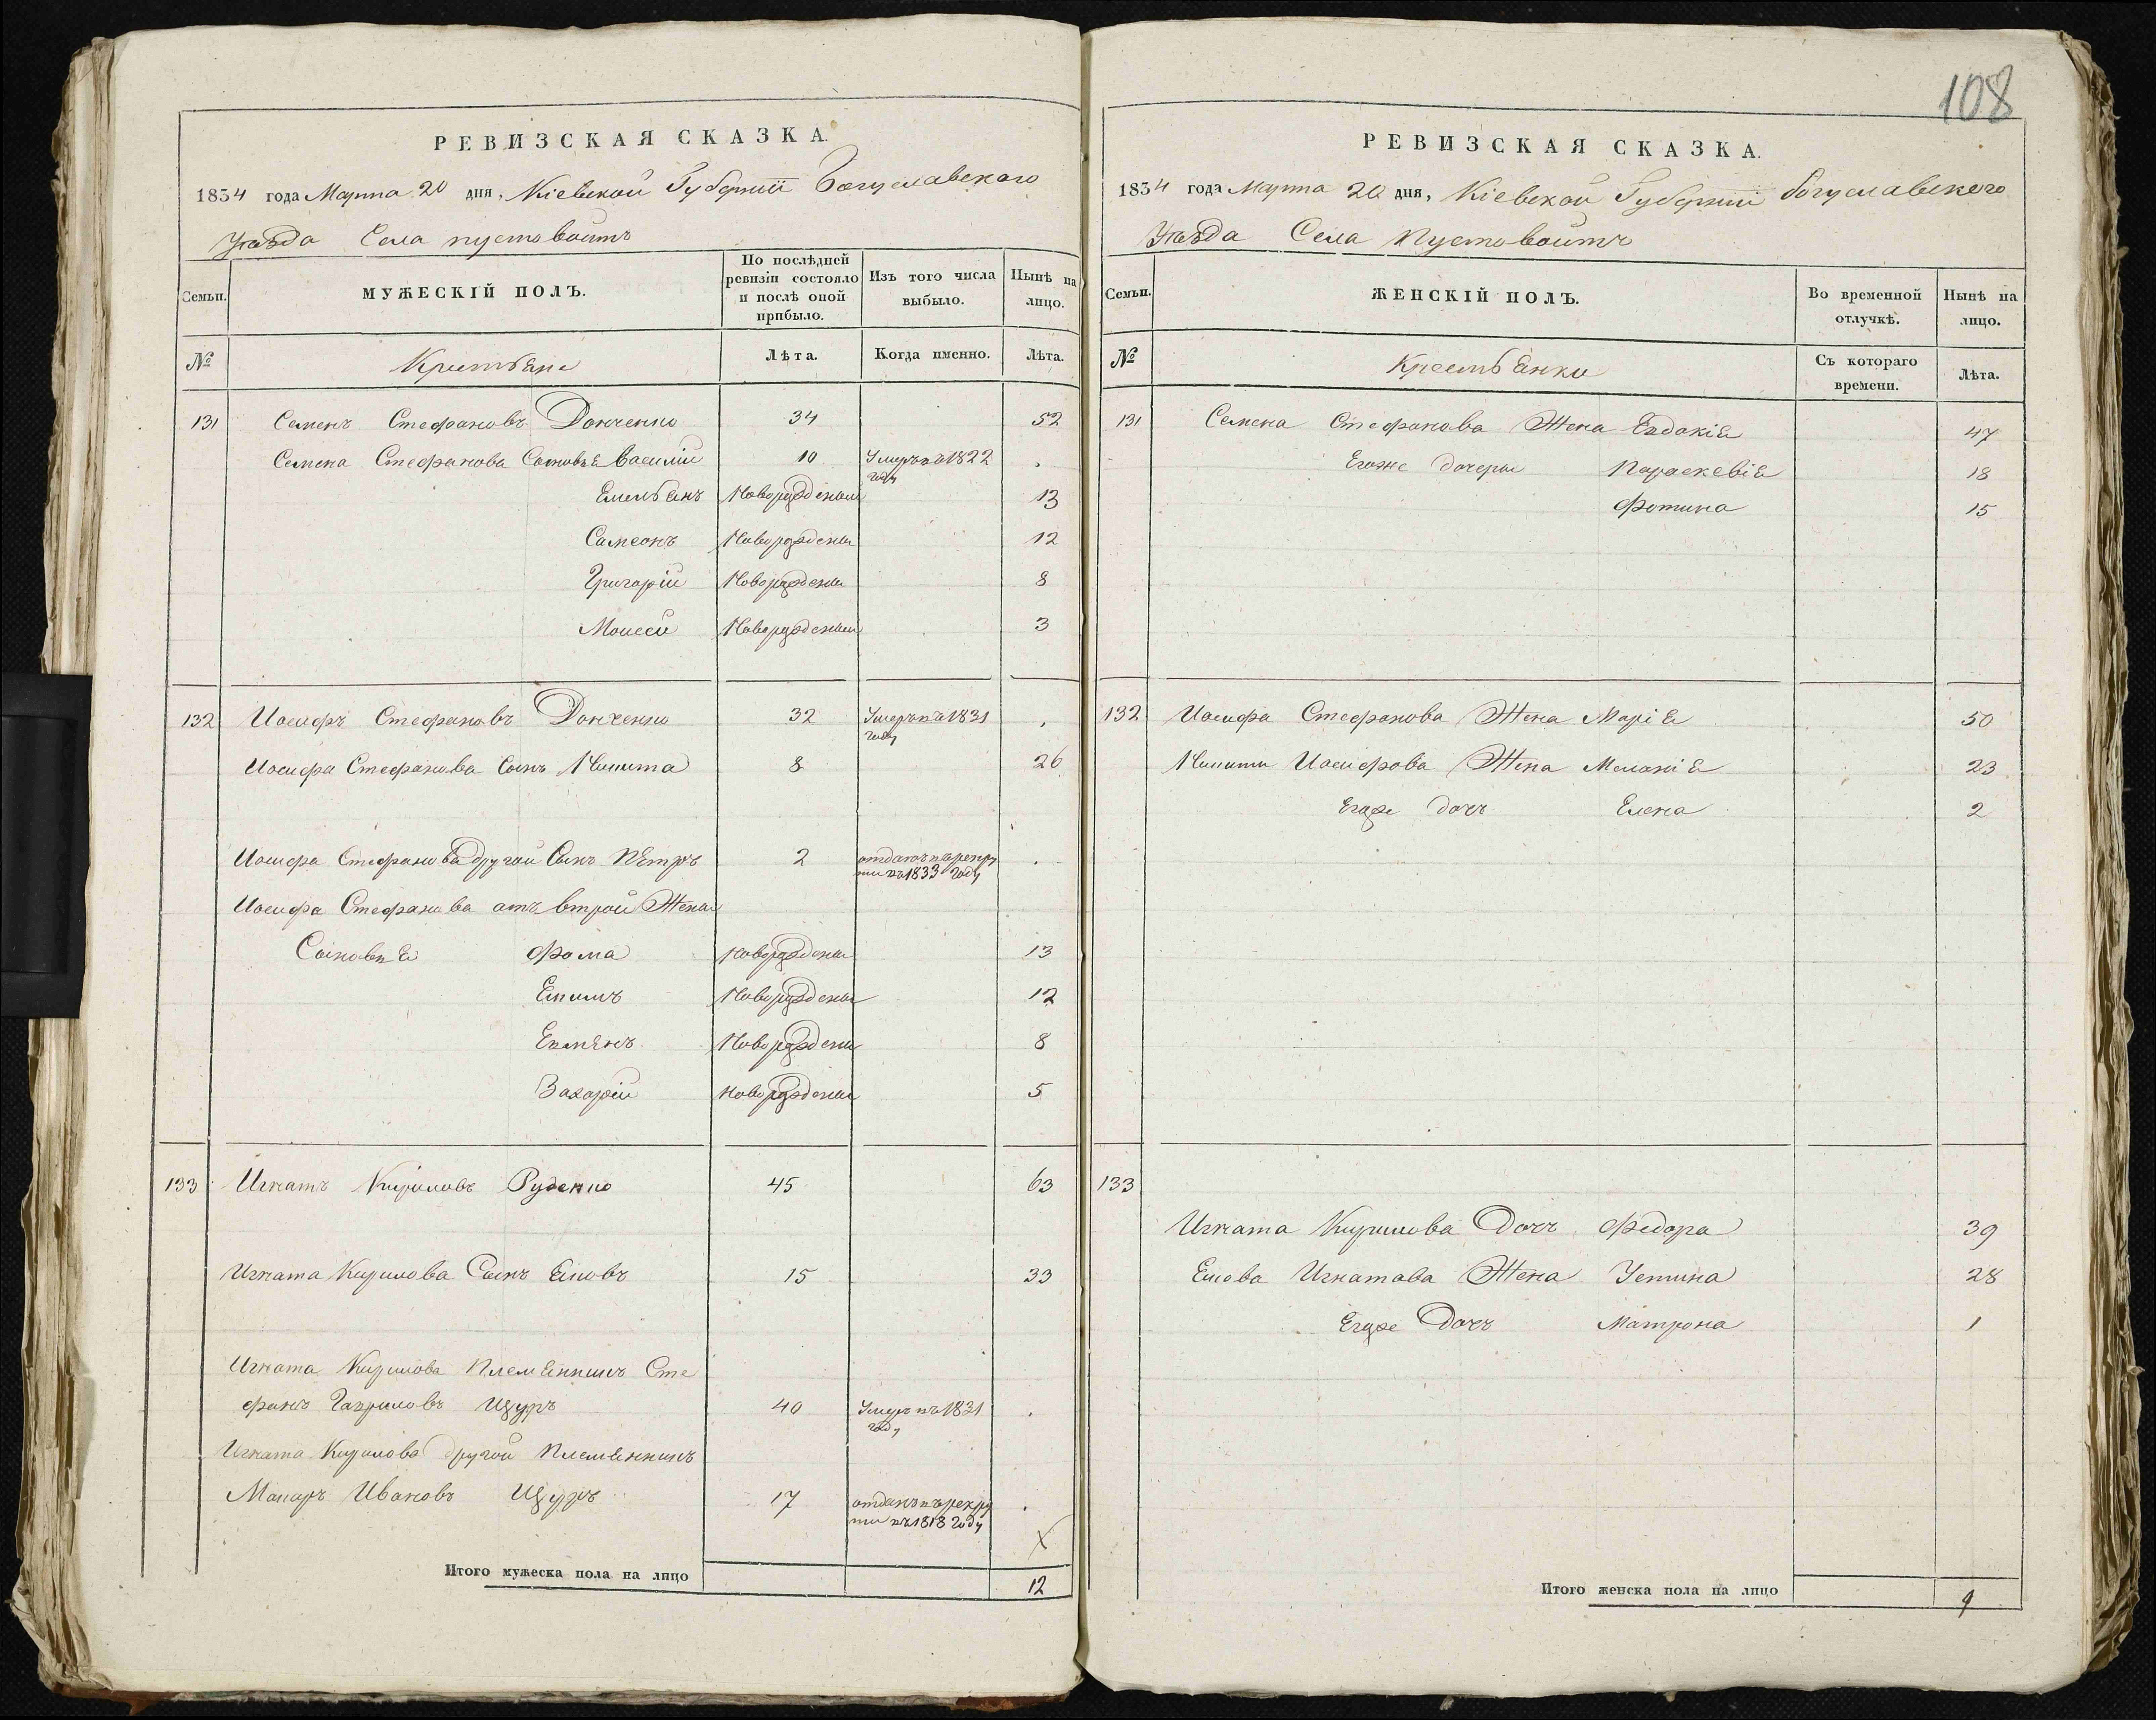 108
РЕВИЗСКАЯ СКАЗКА.
1834 года Марта 20 дня, Кіевской Губерніи Богуславскаго
Уѣзда Села пустовойтъ
Семьи. МУЖЕСКІЙ ПОЛЪ. По послѣдней ревизіи состояло и послѣ оной прибыло. Изъ того числа выбыло. Нынѣ на лицо.
№ Крестьяне Лѣта. Когда именно. Лѣта.
131 Семенъ Стефановъ Донченко 34 52
Семена Стефанова Сыновья Василій 10 Умеръ въ 1822 году .
Емельянъ Новорожденны 13
Самсонъ Новорожденны 12
Григорій Новорожденны 8
Моисей Новорожденны 3
132 Иосифъ Стефановъ Донченко 32 Умеръ въ 1831 году .
Иосифа Стефанова Сынъ Никита 8 26
Иосифа Стефанова другой Сынъ Петръ 2 отданъ въ рекруты въ 1833 Году .
Иосифа Стефанова отъ втрой Жены
Сыновья Фома Новорожденны 13
Новорожденны 12
Новорожденны 8
Захарій Новорожденны 5
133 Игнатъ Кириловъ Руденко 45 63
Игната Кирилова Сынъ Яковъ 15 33
Игната Кирилова Племянникъ Сте
фанъ Гавриловъ Щуръ 40 Умеръ въ 1831 году .
Игната Кирилова другой Племянникъ
Макаръ Ивановъ Щуръ 17 отданъ въ рекруты въ 1818 Году .
Итого мужеска пола на лицо 12
РЕВИЗСКАЯ СКАЗКА.
1834 года Марта 20 дня, Кіевской Губерніи богуславскаго
Уѣзда Села Пустовойтъ
Семьи. ЖЕНСКІЙ ПОЛЪ. Во временной отлучкѣ. Нынѣ на лицо.
№ Крестьянки Съ котораго времени. Лѣта.
131 Семена Стефанова Жена Евдокія 47
Егоже дочери Параскевія 18
Фотина 15
132 Иосифа Стефанова Жена Марія 50
Никиты Иосифова Жена Меланія 23
Егоже дочъ Елена 2
133
Игната Кирилова Дочъ Федора 39
Якова Игнатова Жена Устина 28
Егоже Дочъ Матрона 1
Итого женска пола на лицо 9